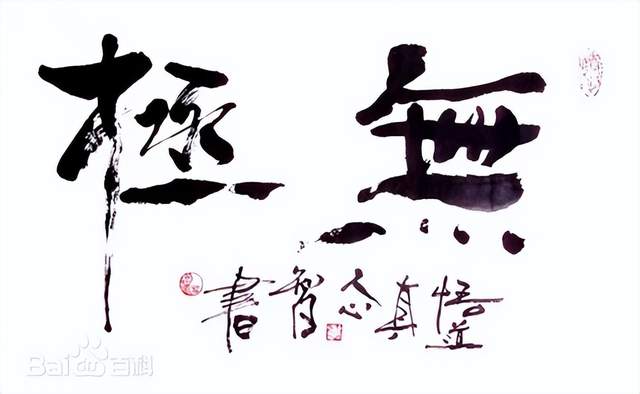 無極
悟道真念智書
Bai百科